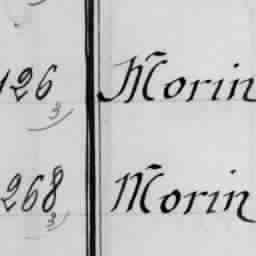 126 3 Morin
268 3 Morin